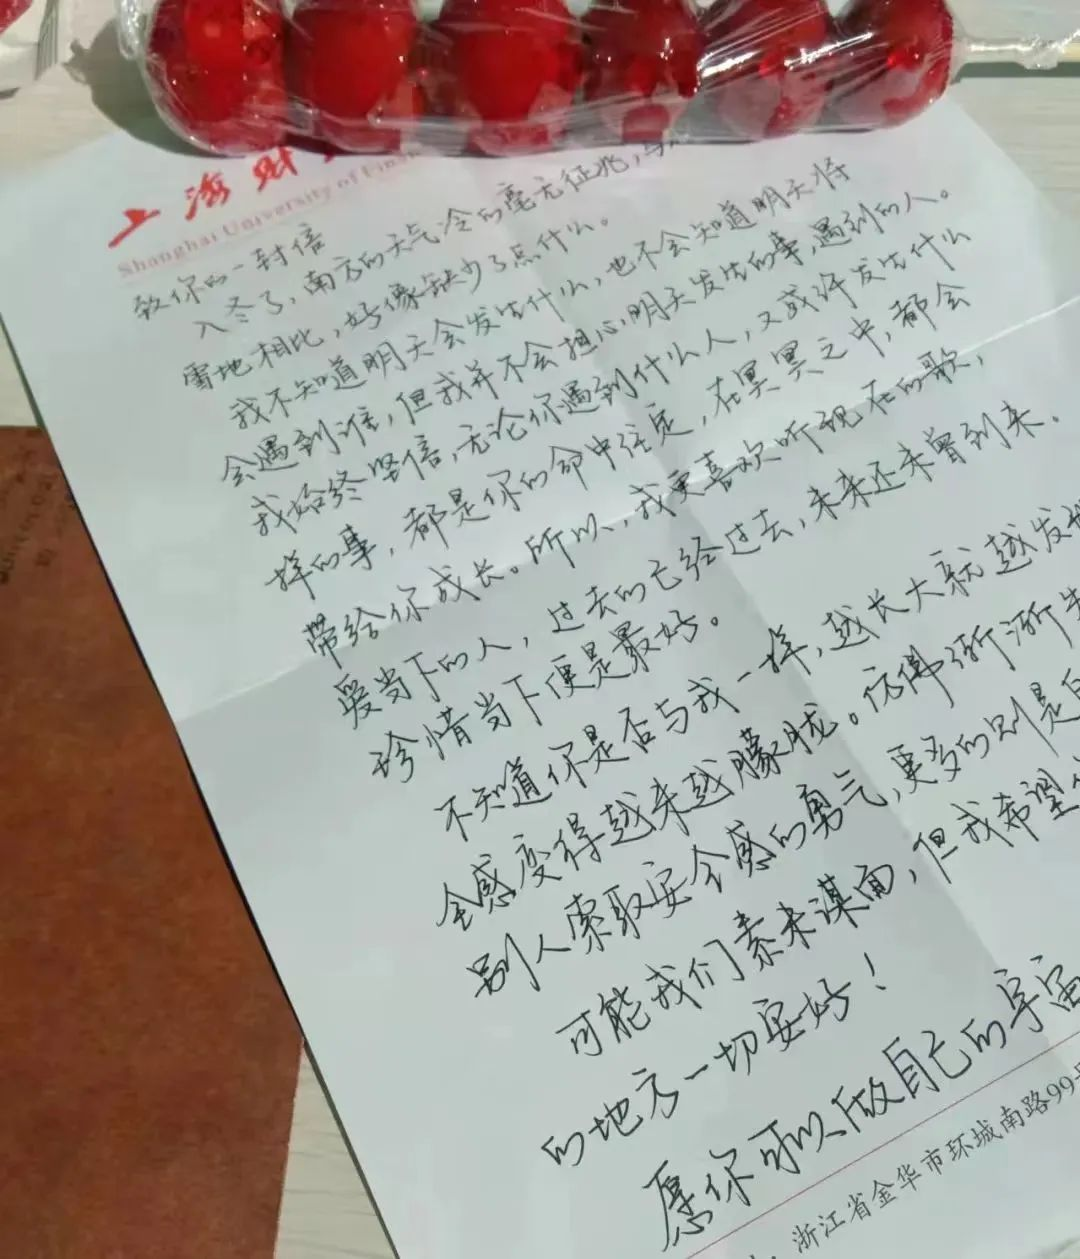 上海财
Shanghai University of Finan
致你的一封信
入冬了，南方的天气冷的毫无征兆，与
雪地相比，好像缺少了点什么。
我不知道明天会发生什么，也不会知道明天将
会遇到谁，但我并不会担心明天发生的事，遇到的人。
我始终坚信，无论你遇到什么人，又或许发生什么
样的事，都是你的命中注定，在冥冥之中，都会
带给你成长。所以，我更喜欢听现在的歌，
爱当下的人，过去的已经过去，未来还未曾到来。
珍惜当下便是最好。
不知道你是否与我一样，越长大就越发
全感变得越来越朦胧。仿佛渐渐失
别人索取安全感的勇气，更多的则是自
可能我们素未谋面，但我希望
的地方一切安好！
愿你可以做自己的宇宙
浙江省金华市环城南路99号